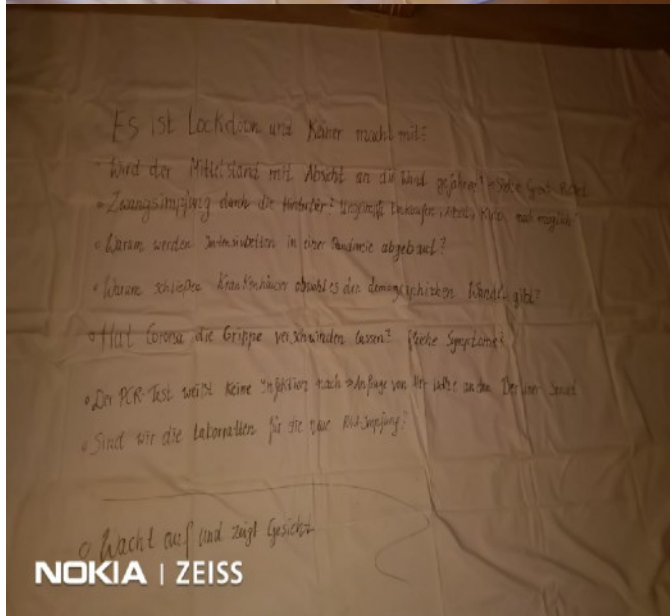 Es ist Lockdown und Keiner macht mit?
• Wird der Mittelstand mit Absicht an die Wand gefahren? siehe Great-Reset
• Zwangsimpfung durch die Hintertür? Einkaufen, Arbeit, noch möglich?
• Warum werden Intensivbetten in einer Pandemie abgebaut?
• Warum schließen Krankenhäuser obwohl es den demographischen Wandel gibt?
• Hat Corona die Grippe verschwinden lassen? Symptome?
• Der PCR-Test weißt keine Infektion nach → Anfrage von an den Berliner Senat
• Sind wir die Laborratten für die neue RNA-Impfung?
○ Wacht auf und zeigt Gesicht
NOKIA | ZEISS